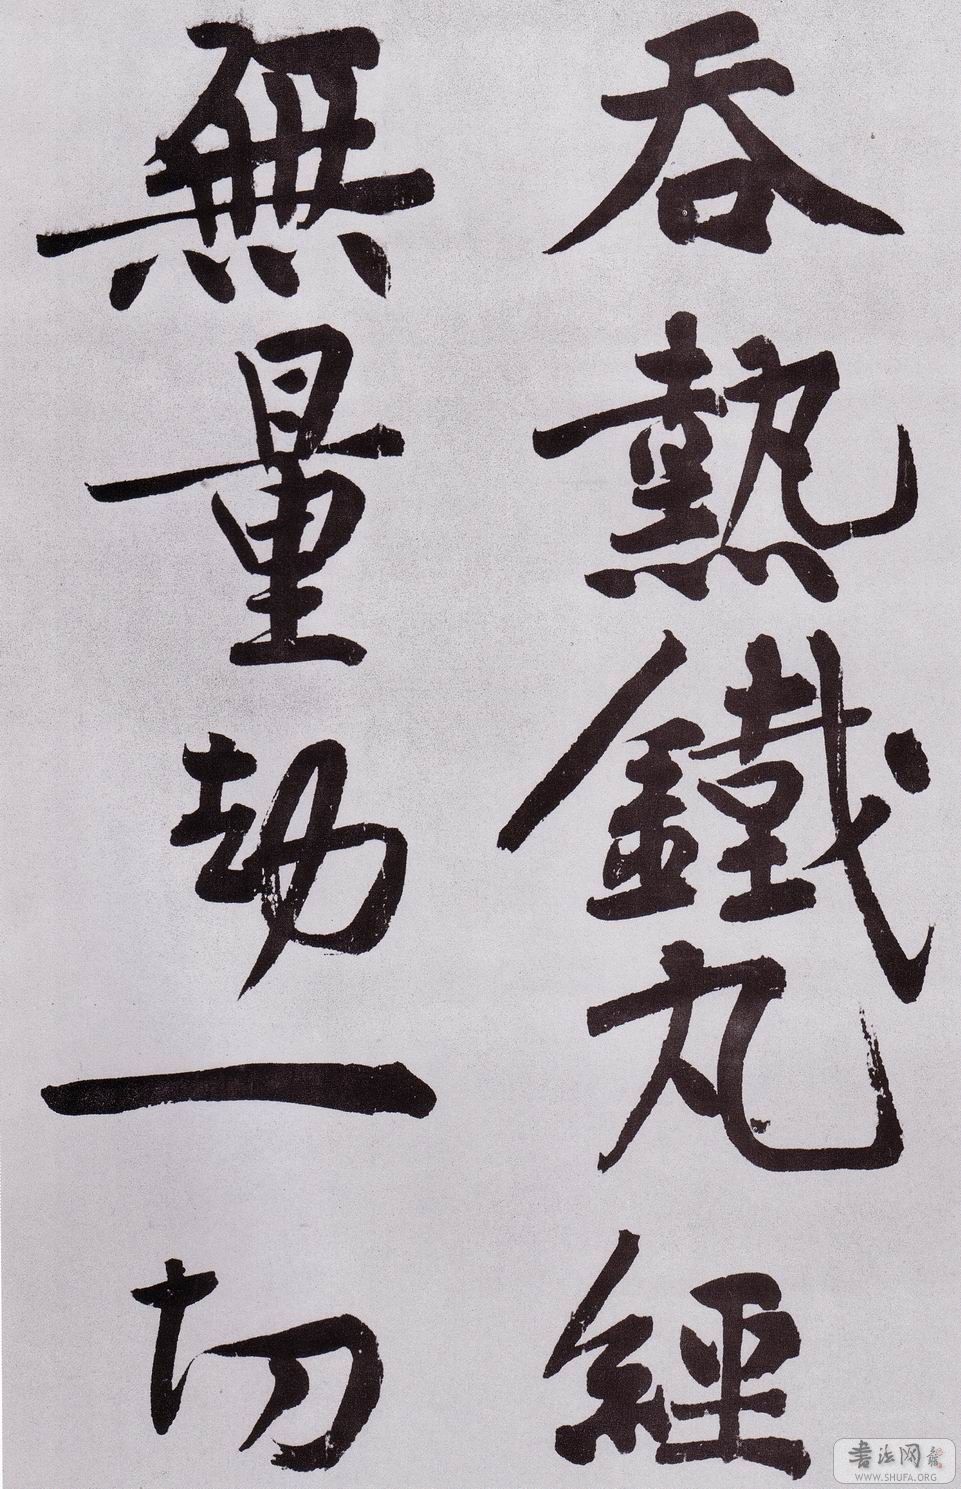 吞熱鐵丸經
無量劫一切
書法网
WWW.SHUFA.ORG